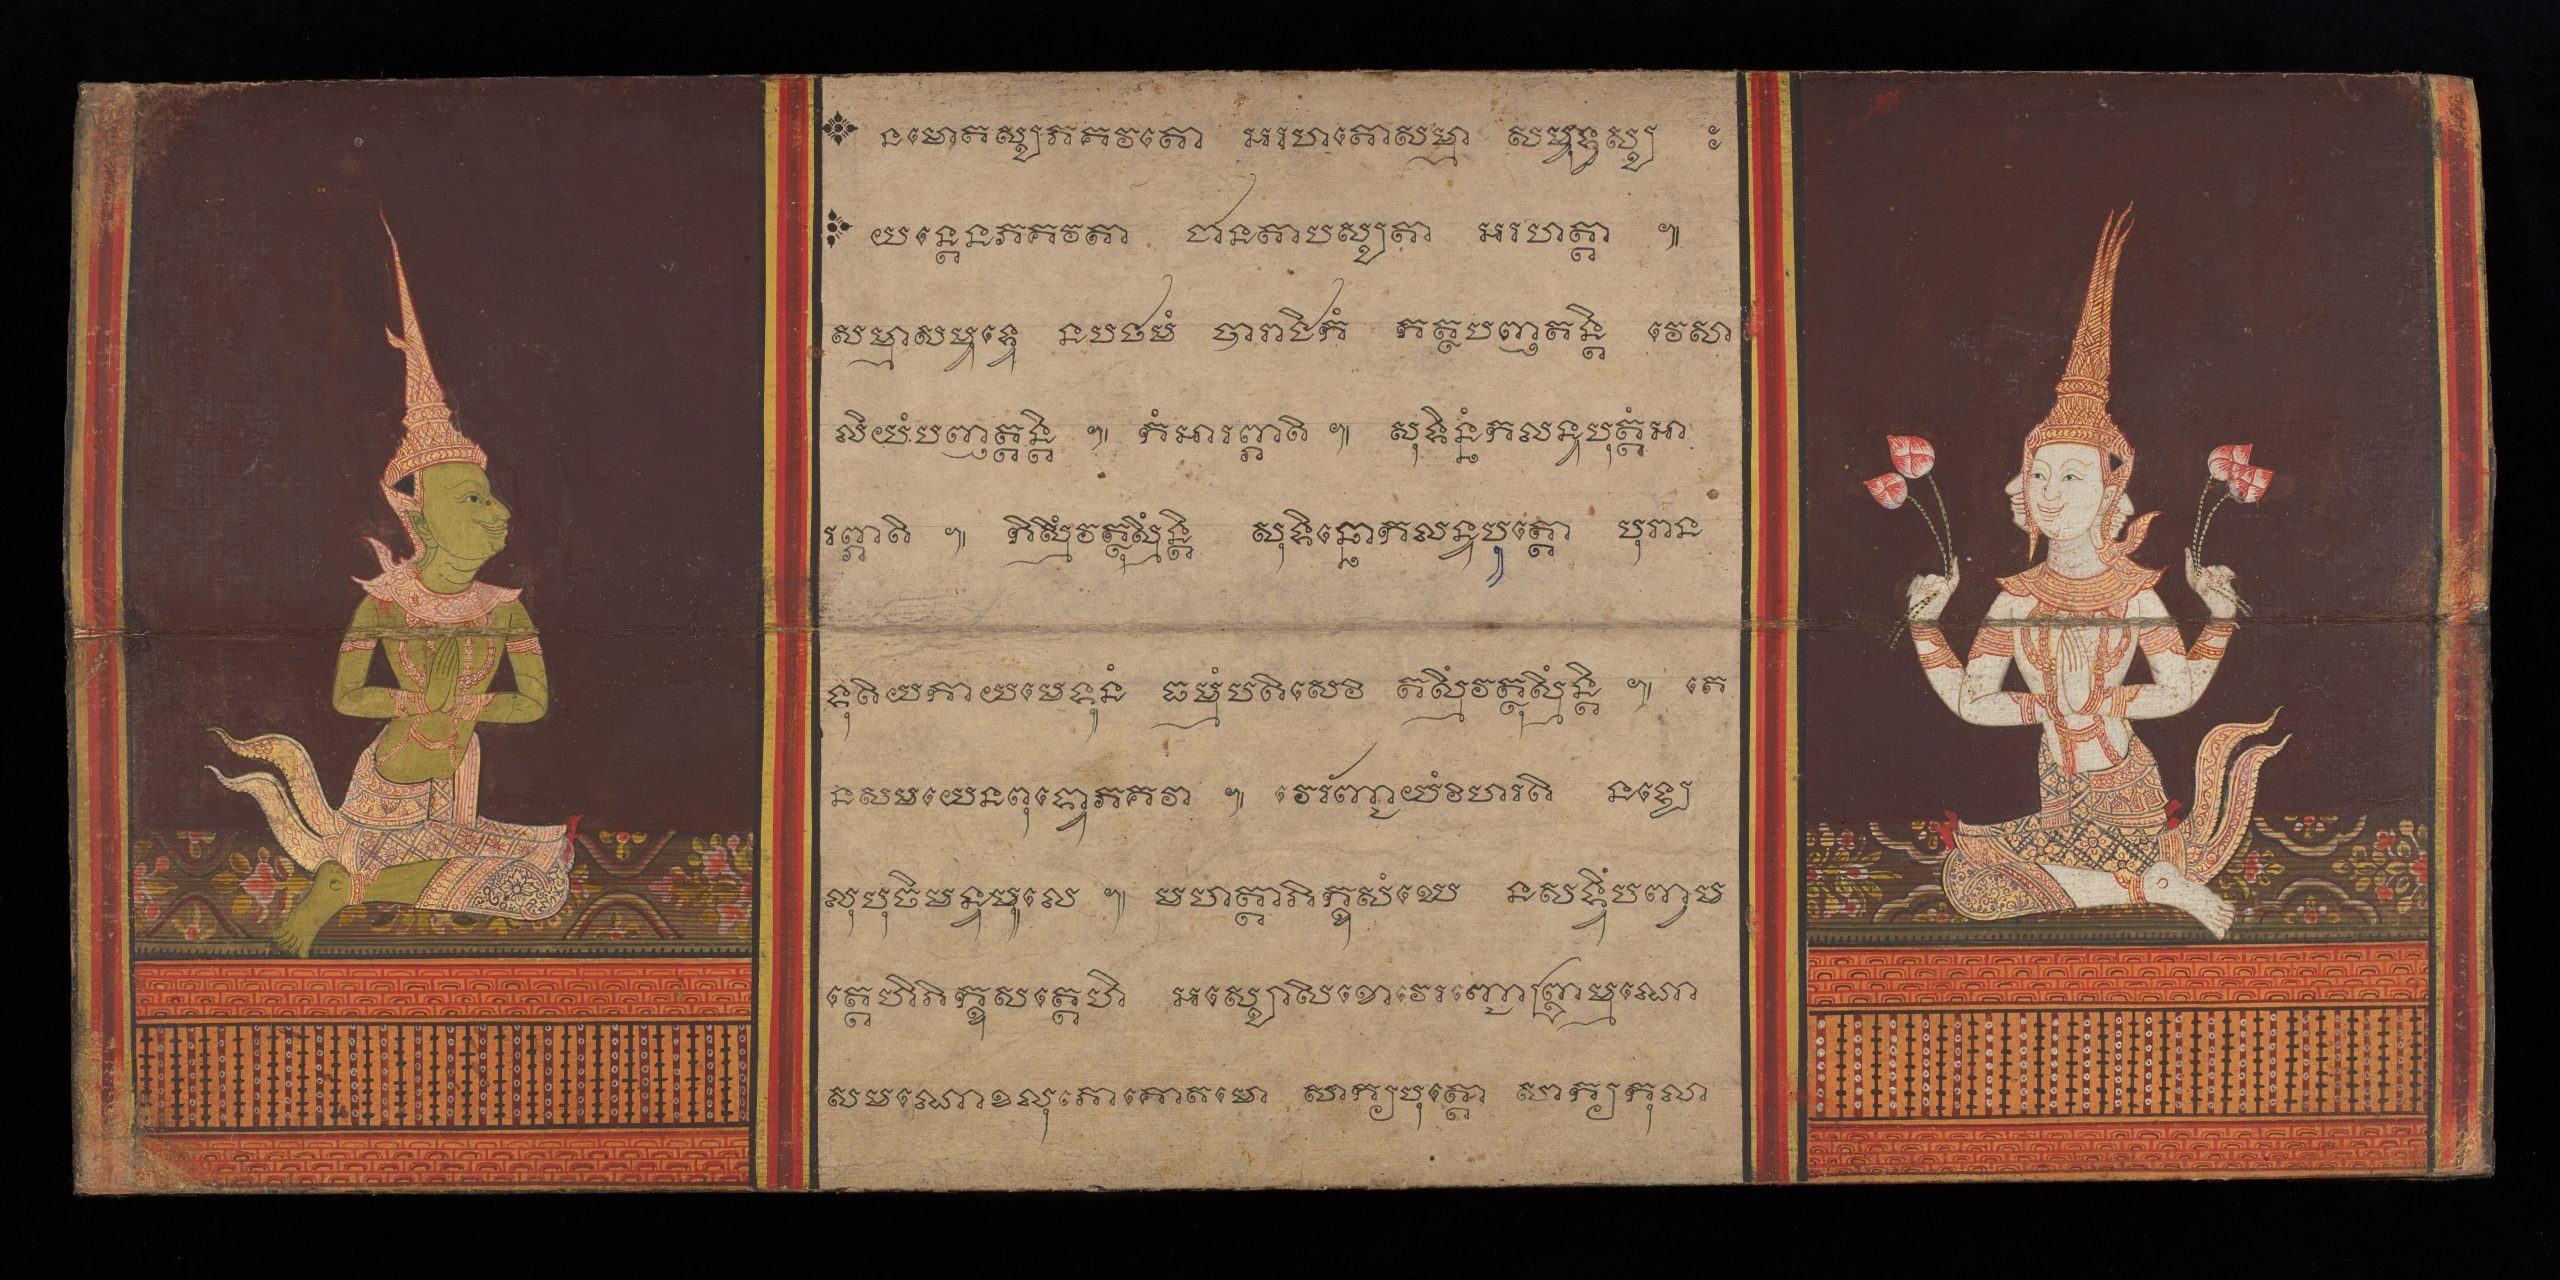 នមោតស្សភគវតោ អរហតោសម្មា សម្ពុទ្ធស្ស ៈ
យន្តេនភគវតា ជានតាបស្សតា អរហត្តា ៕
សម្មាសម្ពុទ្ធេ នបឋមំ បារាជិកំ កត្ថបញ្ញតន្តិ វេសា
លិយំបញ្ញត្តន្តិ ៕ កំអារព្ភាតិ ៕ សុទិន្នំកលន្ទបុត្តំអា
រព្ភាតិ ៕ កិស្មឹវត្ថុស្មឹន្តិ សុទិន្នោកលន្ទបុត្តោ បុរាន
ទុតិយកាយមេទុនំ ធម្មំបតិសេវិ តស្មឹវត្ថុស្មឹន្តិ ៕ តេ
នសមយេនពុទ្ធោភគវា ៕ វេរញ្ជាយំវិហរតិ នឡេ
លុបុចិមន្ទមូលេ ៕ មហត្តាភិក្ខុសំឃេ នសទ្ធឹបញ្ចម
ត្តេហិភិក្ខុសត្តេហិ អស្សោសិខោវេរញ្ជោព្រាម្មណោ
សមណោខលុភោគោតមោ សាក្យបុត្តោ សាក្យកុលា